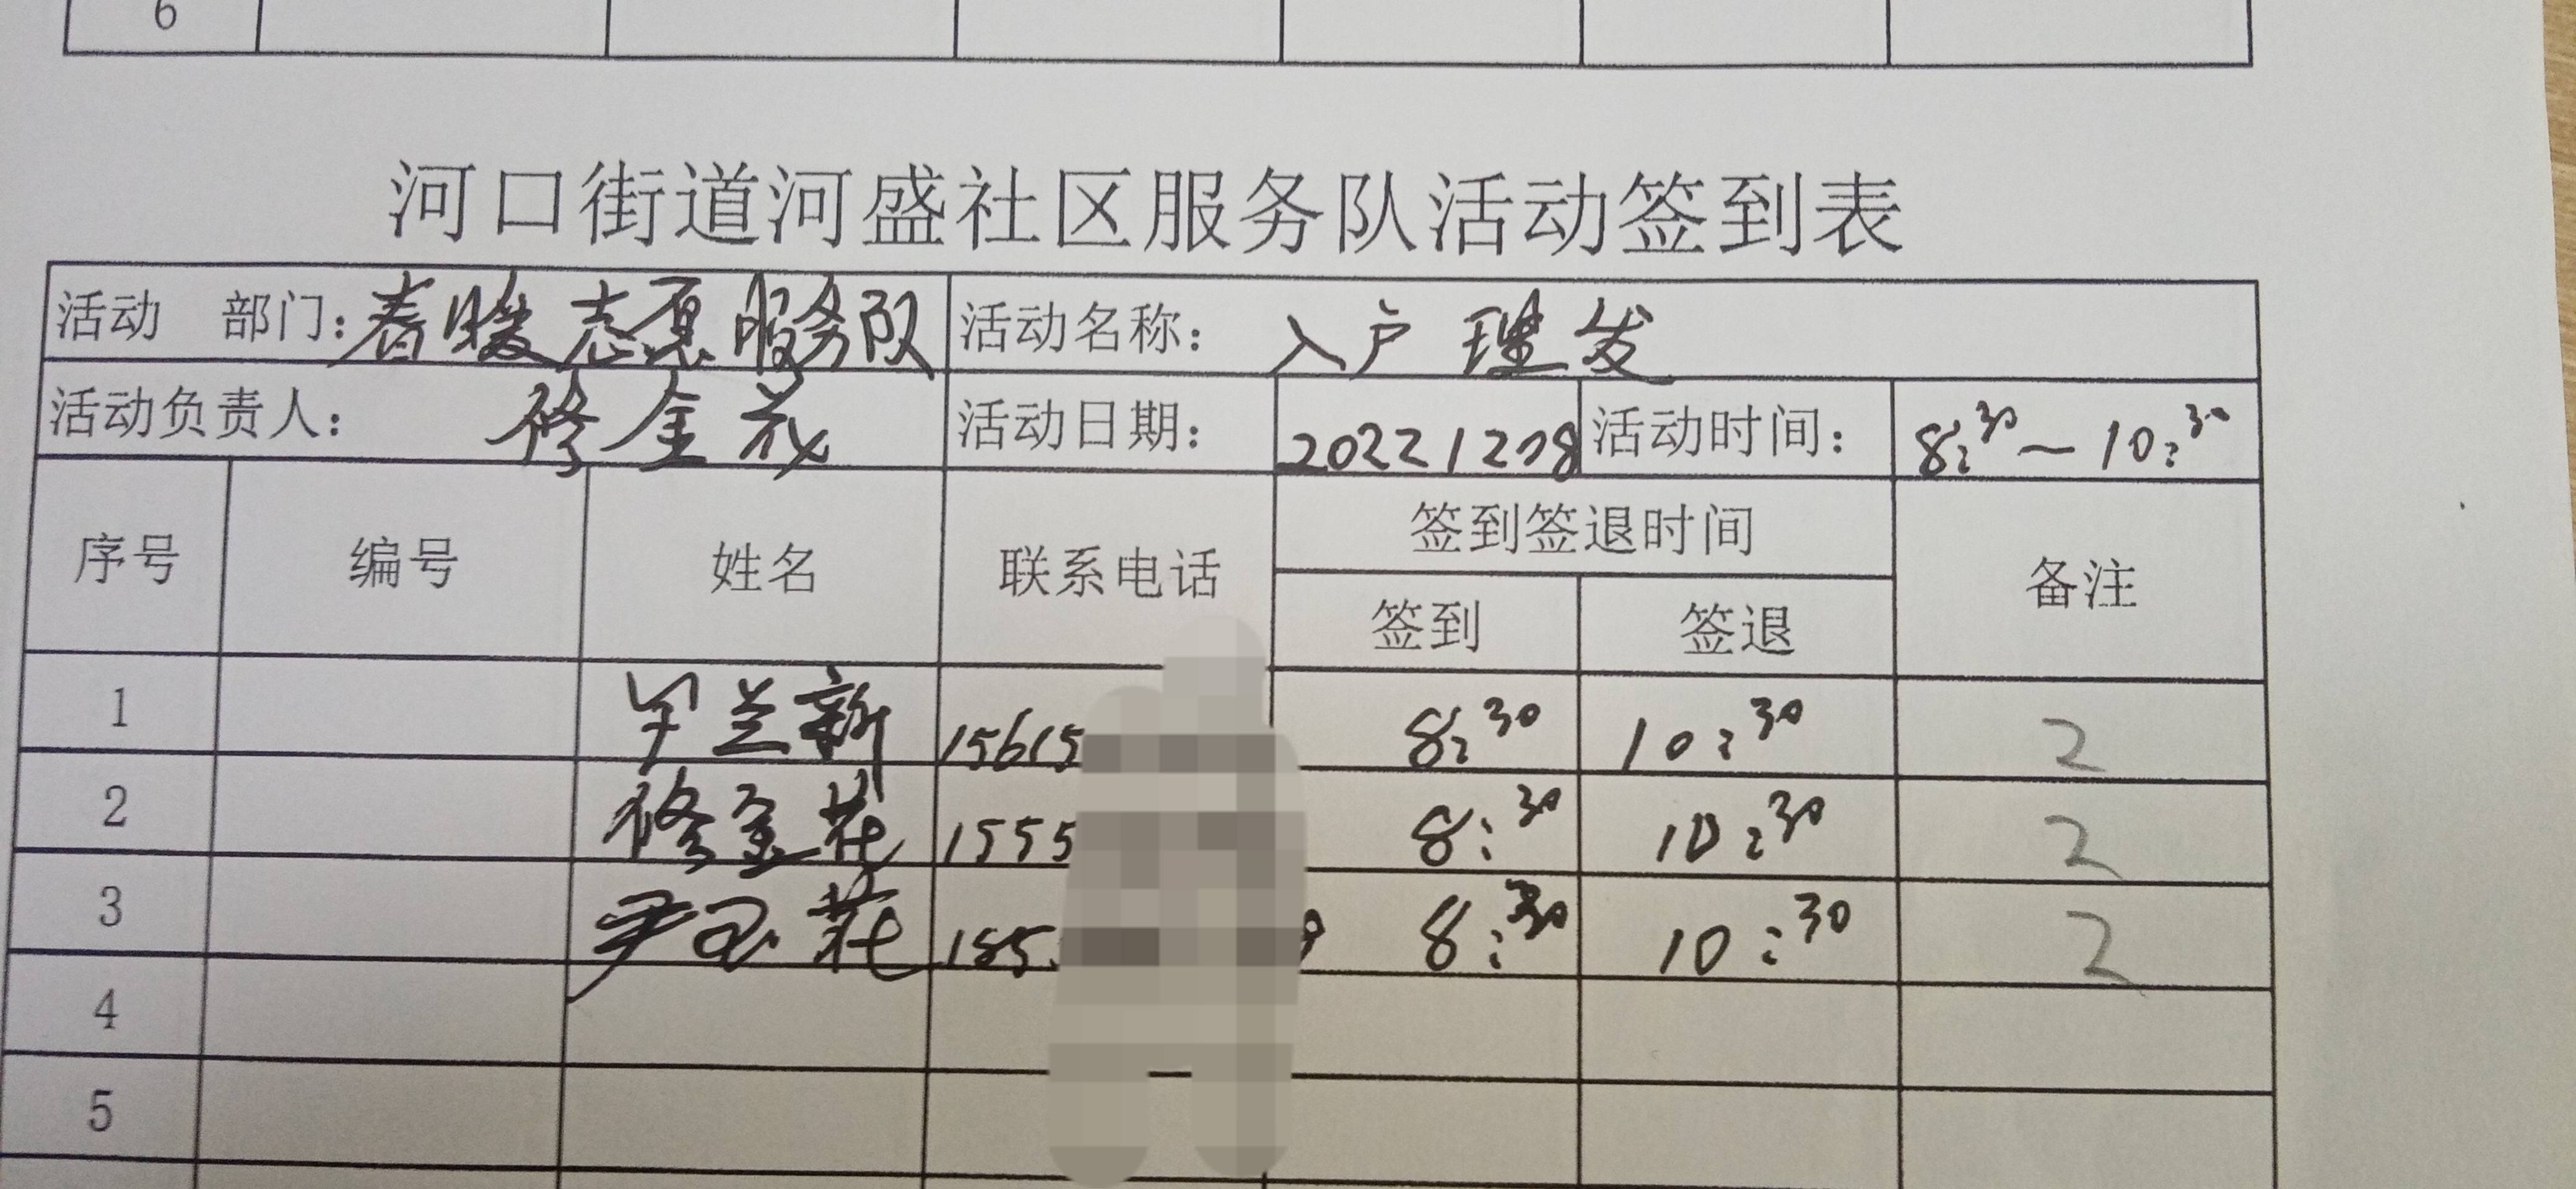 6
河口街道河盛社区服务队活动签到表
活动 部门：春暖志愿服务队 活动名称： 入户理发
活动负责人： 修金花 活动日期： 20221208 活动时间： 8:30～10:30
序号 编号 姓名 联系电话 签到签退时间 备注
签到 签退
1 兰新 15615 8:30 10:30 2
2 修金花 1555 8:30 10:30 2
3 尹玉花 185 8:30 10:30 2
4
5